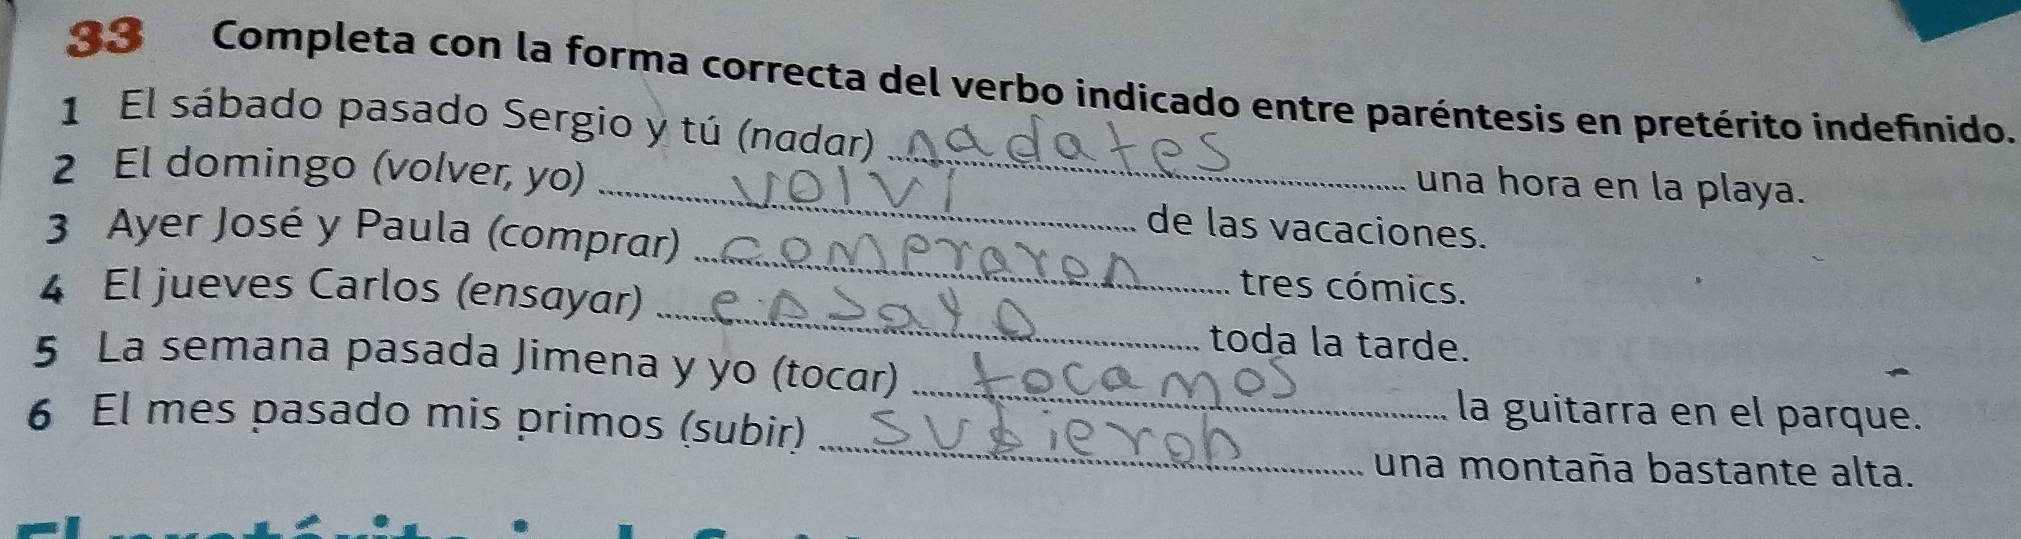 33 Completa con la forma correcta del verbo indicado entre paréntesis en pretérito indefinido.
1 El sábado pasado Sergio y tú (nadar) nadates una hora en la playa.
2 El domingo (volver, yo) volvi de las vacaciones.
3 Ayer José y Paula (comprar) compraron tres cómics.
4 El jueves Carlos (ensayar) ensayo toda la tarde.
5 La semana pasada Jimena y yo (tocar) tocamos la guitarra en el parque.
6 El mes pasado mis primos (subir) subieron una montaña bastante alta.